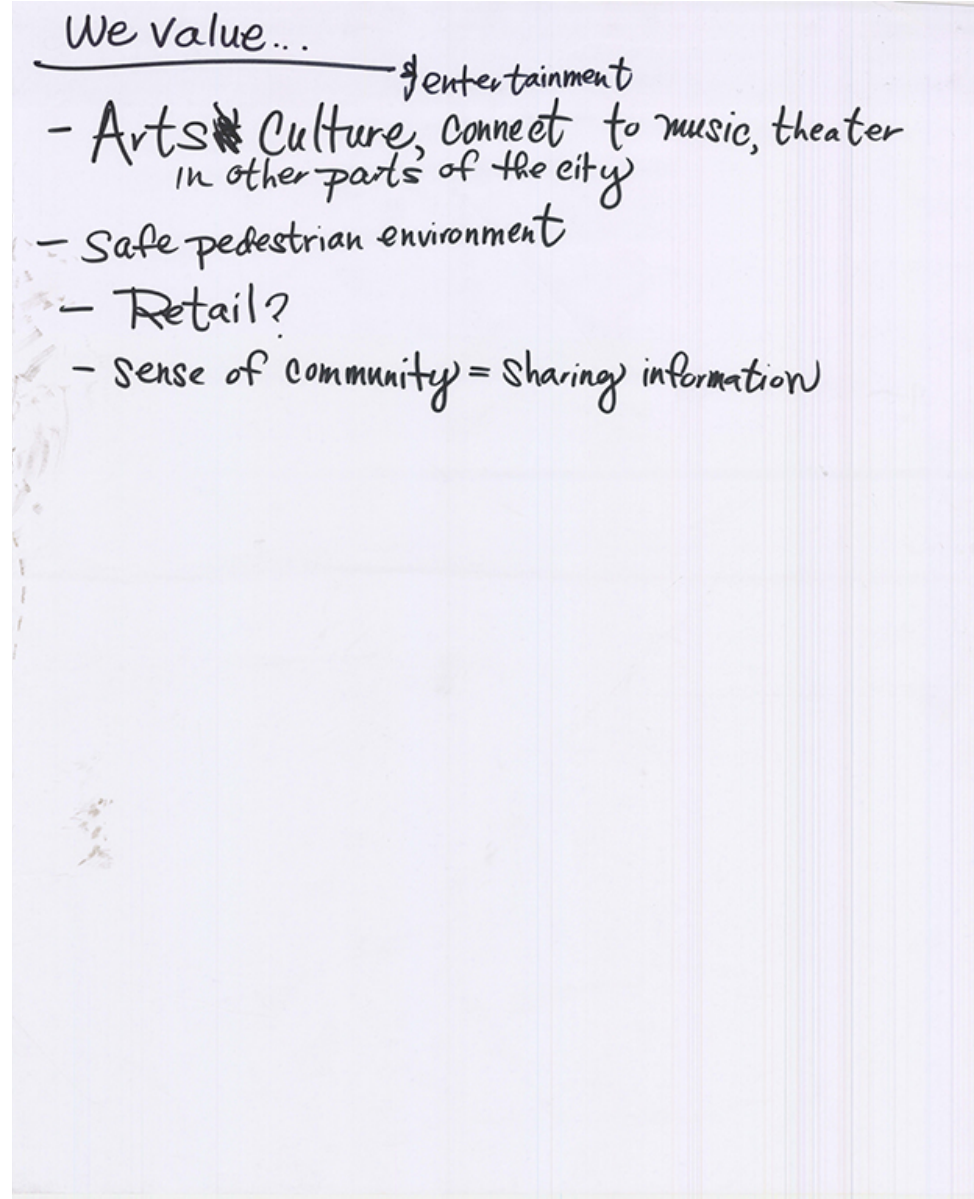 We value...
& entertainment
- Arts Culture, connect to music, theater
in other parts of the city
- Safe pedestrian environment
- Retail?
- sense of community = sharing information